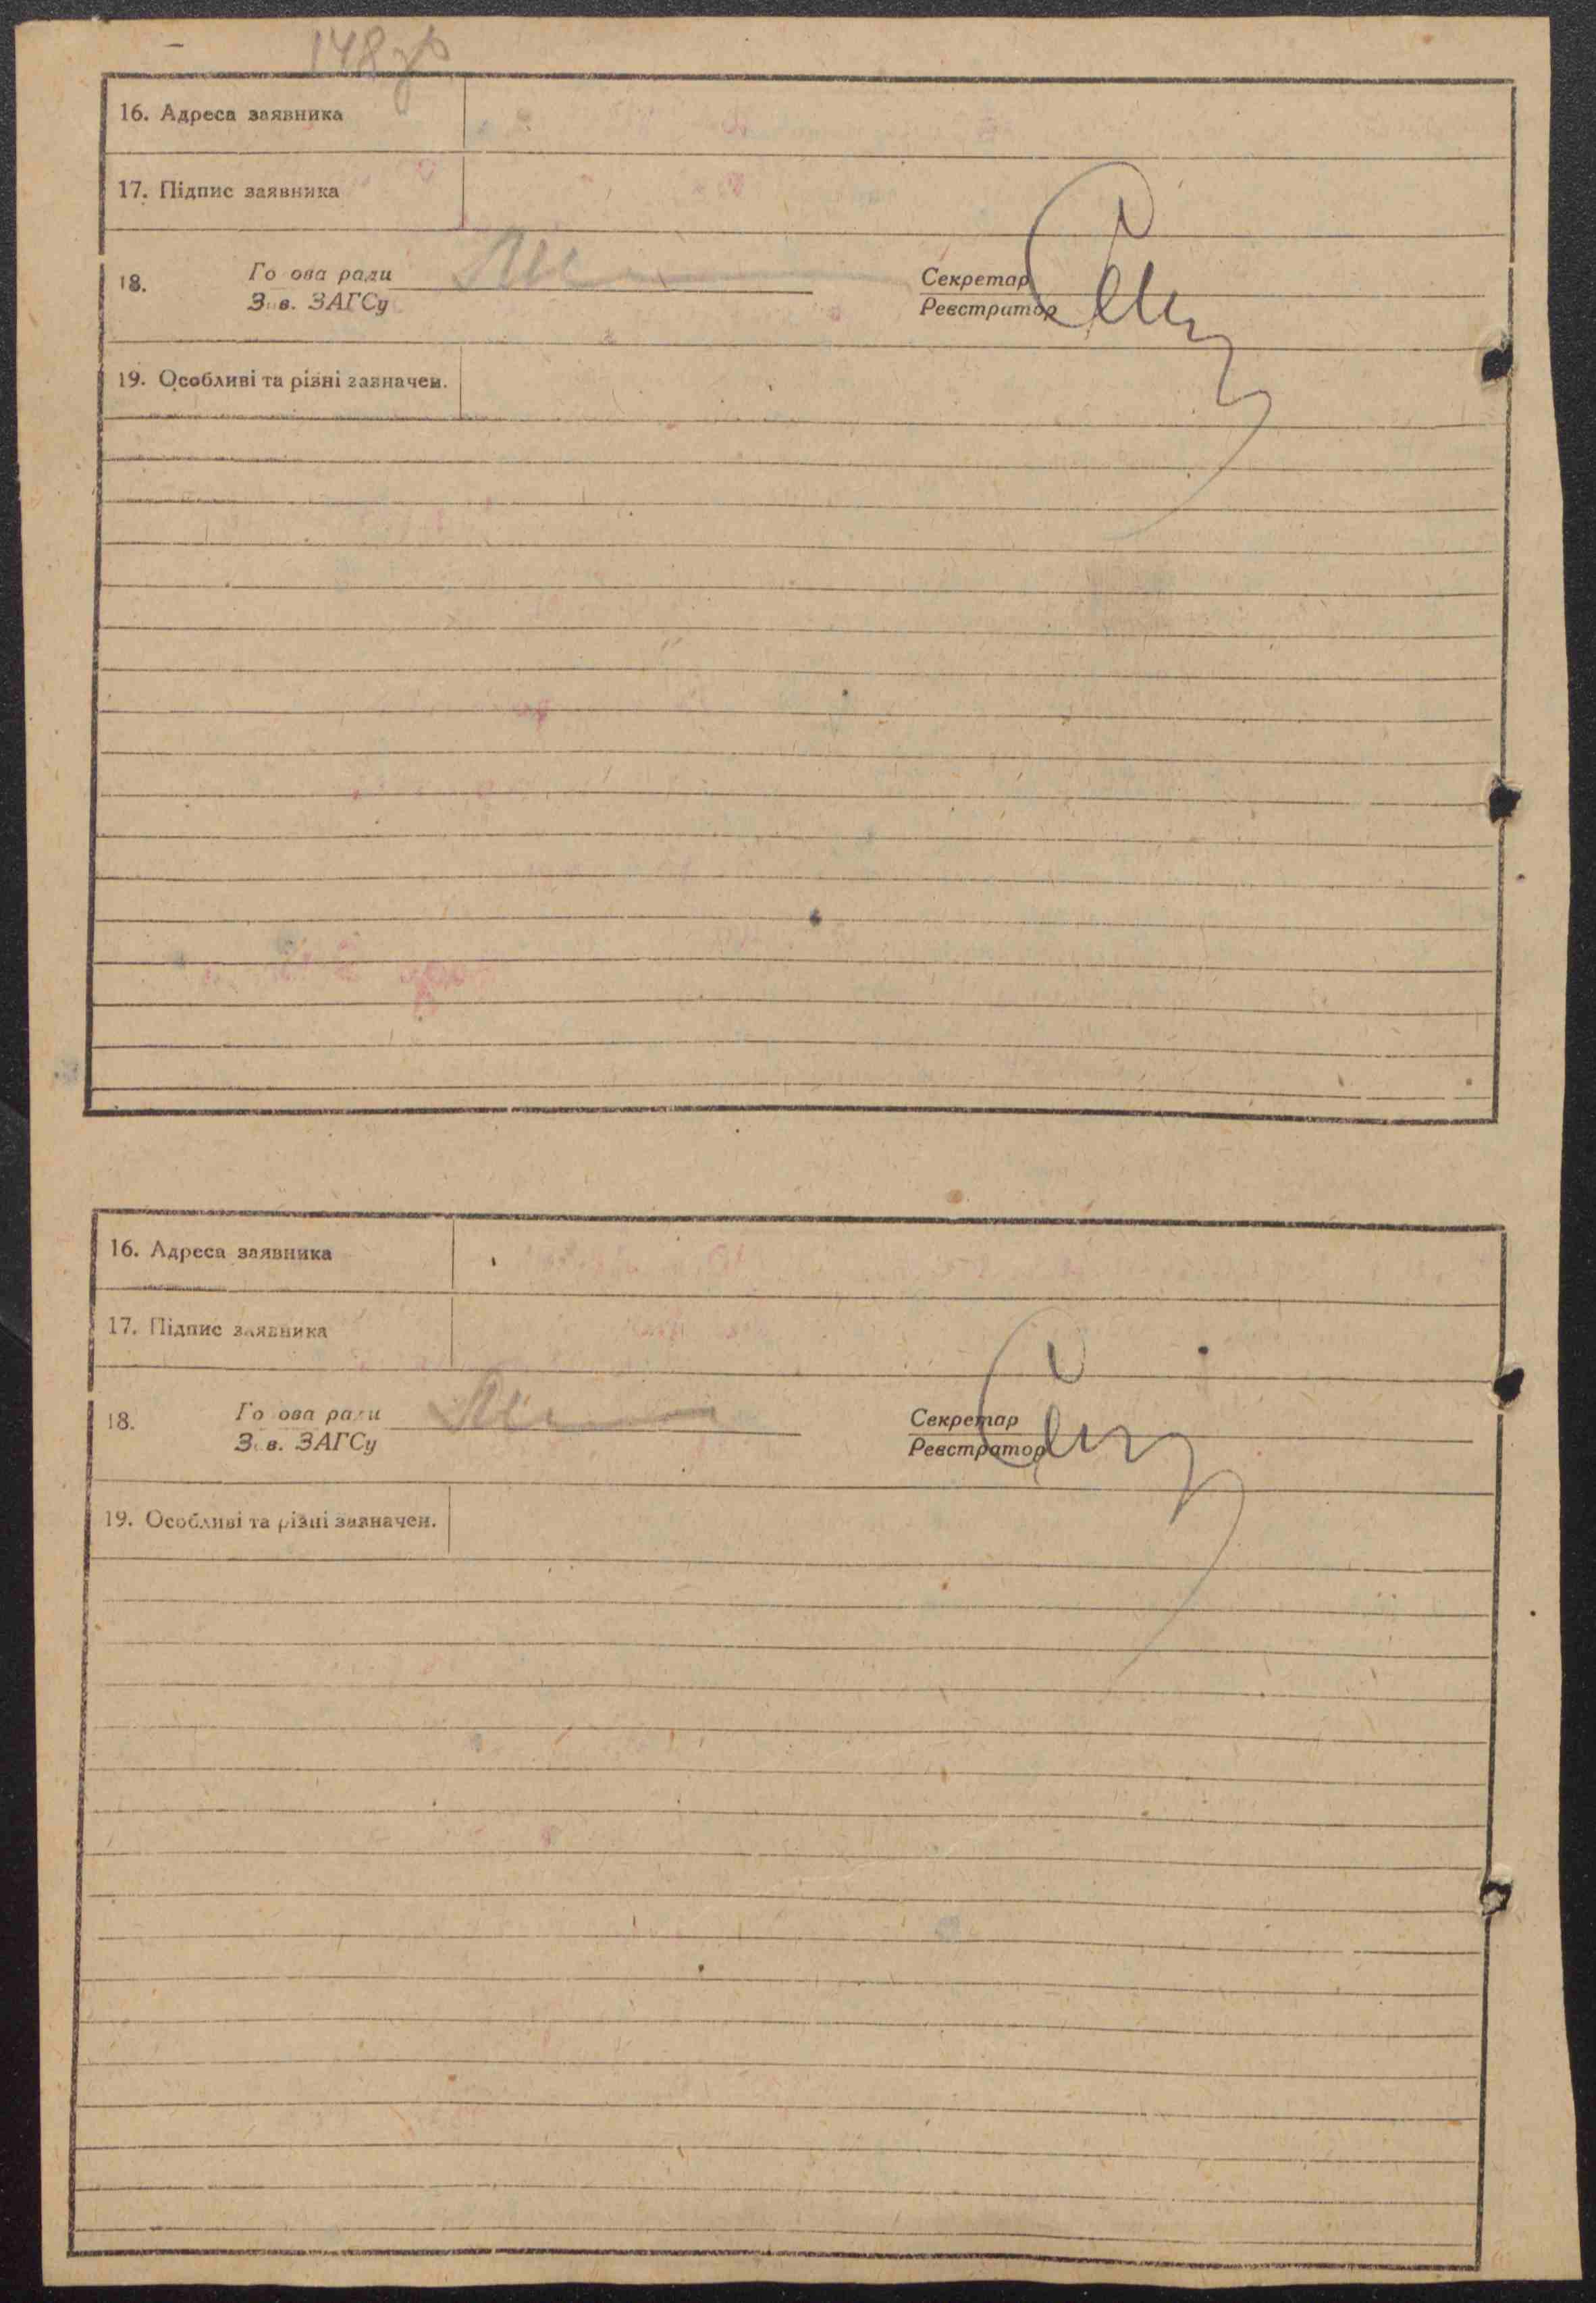 148 зв
16. Адреса заявника
17. Підпис заявника
18. Го ова ради Секретар
З в. ЗАГСу Реєстратор
19. Особливі та різні зазначен.
16. Адреса заявника
17. Підпис заявника
18. Го ова ради Секретар
З в. ЗАГСу Реєстратор
19. Особливі та різні зазначен.